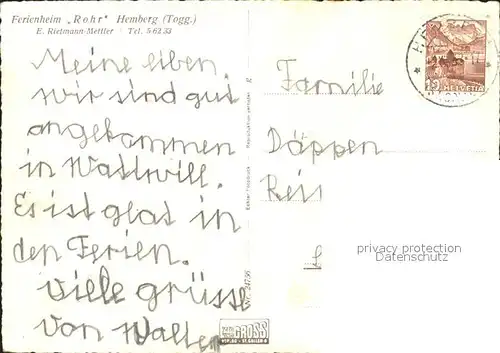 Ferienheim „Rohr" Hemberg (Togg.)
E. Rietmann-Mettler Tel. 5 62 33
Meine liben.
wir sind gut
angekommen
in Wattwill.
Es ist glat in
den Ferien.
Viele grüsse
von Walter
Familie
Däppen
HELVETIA
privacy protection
Datenschutz
GROSS
ST. GALLEN